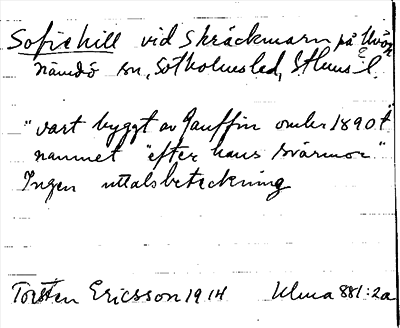 Sofiehill vid Skräckmarn på Uvön
Nämdö sn, Sotholms hd, Sthms l.
"vart byggt av Gauffin omkr 1890t"
namnet "efter hans svärmor"
Ingen uttalsbeteckning
Torsten Ericsson 1914 Ulma 881:2a